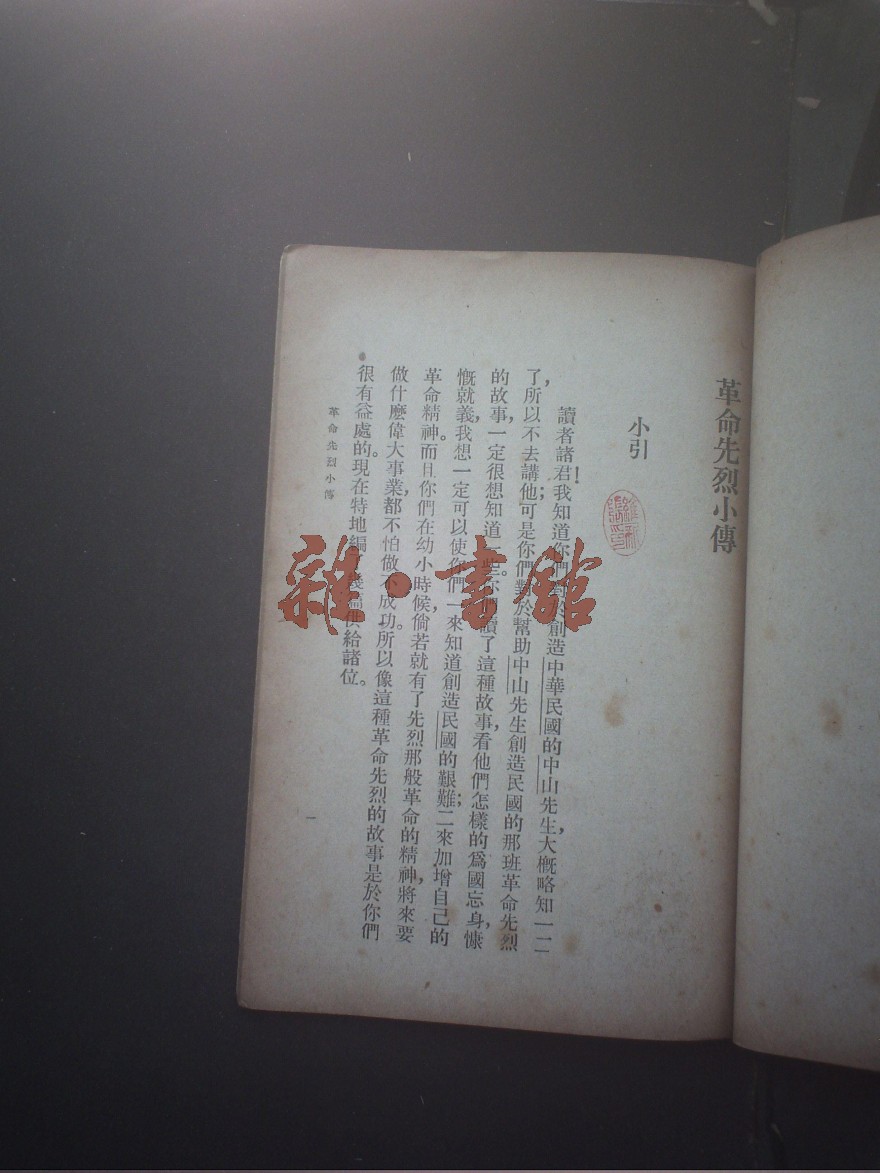 革命先烈小傳
小引
讀者諸君!我知道你們對於創造中華民國的中山先生,大概略知一二
了,所以不去講他;可是你們對於幫助中山先生創造民國的那班革命先烈
的故事,一定很想知道一些。你們讀了這種故事,看他們怎樣的爲國忘身,慷
慨就義,我想一定可以使你們一來知道創造民國的艱難;二來加增自己的
革命精神。而且你們在幼小時候,倘若就有了先烈那般革命的精神,將來要
做什麽偉大事業,都不怕做不成功。所以像這種革命先烈的故事,是於你們
很有益處的。現在特地編了幾篇供給諸位。
革命先烈小傳
一
雜·書館